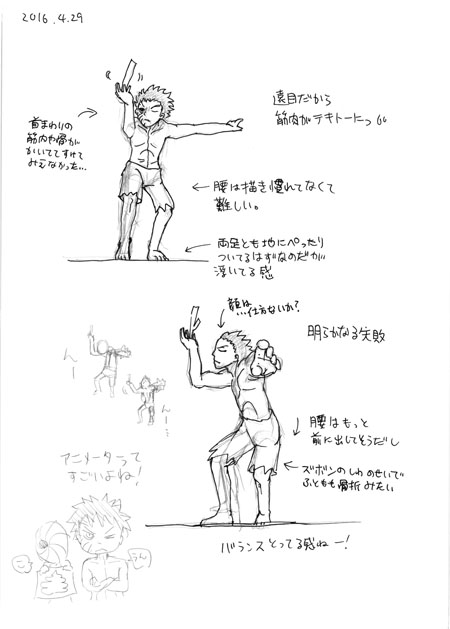 2016.4.29
遠目だから
筋肉がテキトーにっ
首まわりの
筋肉や骨が
かいててすけて
みえなかった…
腰は描き慣れてなくて
難しい。
両足とも地にぺったり
ついてるはずなのだが
浮いてる感
顔は
…仕方ないか?
明らかなる失敗
んー
んー…
腰はもっと
前に出してそうだし
アニメーターって
すごいよね!
ズボンのしわのせいで
ふともも骨折みたい
うん
バランスとってる感ねー!